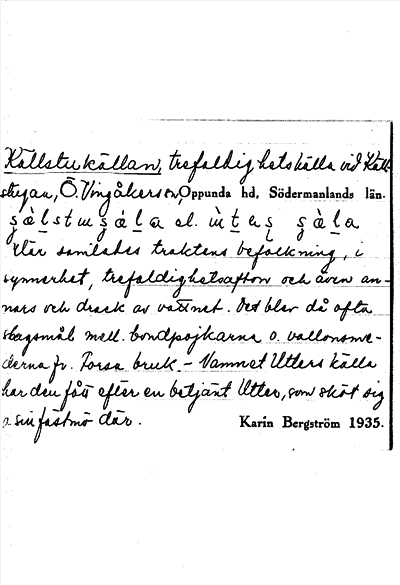 Källstukällan, trefaldighetskälla vid Käll-
stugan, Ö. Vingåkers sn, Oppunda hd, Södermanlands län.
Där samlades traktens befolkning, i
synnerhet, trefaldighetsafton och även an-
nars och drack av vattnet. Det blev då ofta
slagsmål mell. bondpojkarna o. vallonsme-
derna fr. Forsa bruk. – Namnet Utters källa
har den fått efter en betjänt Utter, som sköt sig
o sin fästmö där. Karin Bergström 1935.